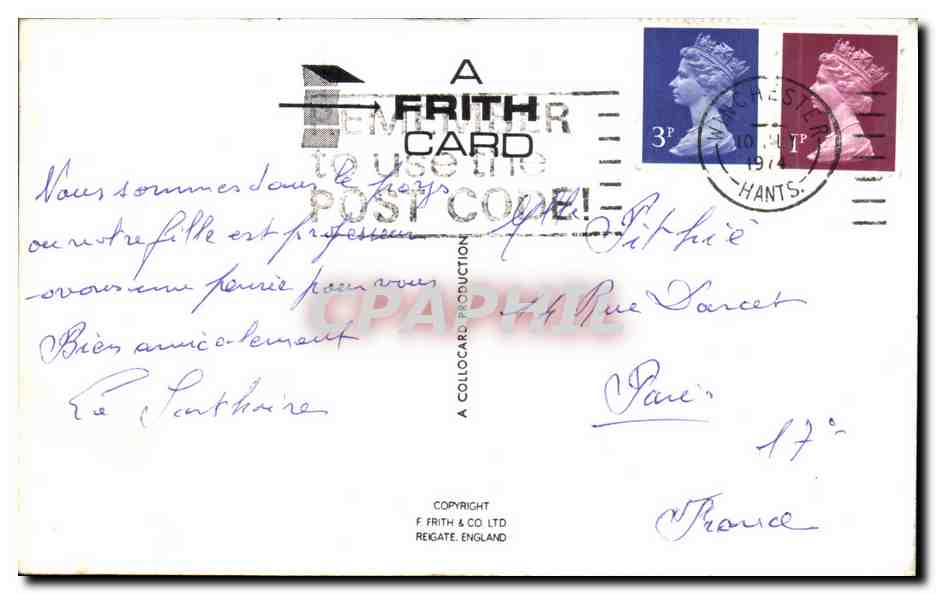 A
FRITH
CARD
REMEMBER
to use the
POST CODE!
3P
1P
WINCHESTER
HANTS.
10
1974
Nous sommes dans le pays
ou notre fille est professeur
avons une pensée pour vous
Bien amicalement
Melle Pithié
14 Rue Darcet
Paris
17e
France
A COLLOCARD PRODUCTION
CPAPHIL
COPYRIGHT
F. FRITH & CO. LTD
REIGATE, ENGLAND